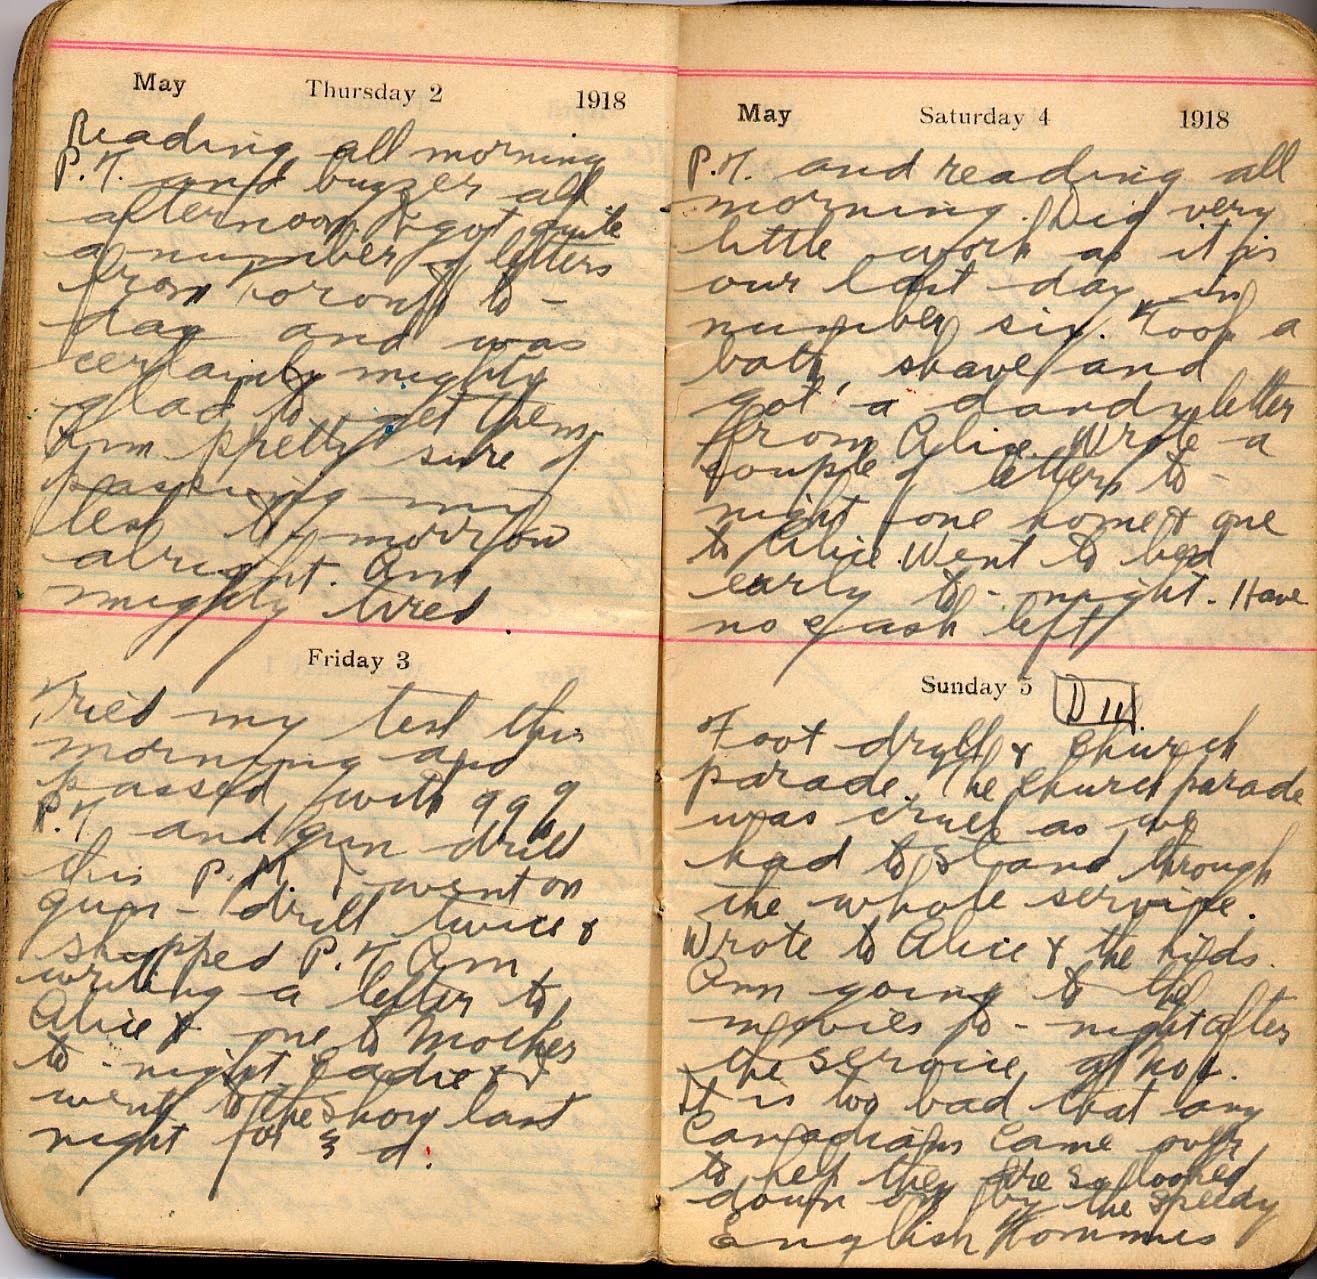 May Thursday 2 1918
Reading all morning
P.T. and buzzer all
afternoon. I got quite
a number of letters
from Toronto to-
day and was
certainly mighty
glad to get them.
Am pretty sure of
passing my
test to-morrow
alright. Am
mighty tired.
Friday 3
Tried my test this
morning and
passed with 99 %
P.T. and gun drill
this P.M. I went on
gun-drill twice &
skipped P.T. Am
writing a letter to
Alice & one to Mother
to-night Eadie & I
went to the show last
night for 3 d.
May Saturday 4 1918
P.T. and reading all
morning. Did very
little work as it is
our last day in
number six. Took a
bath, shave and
got a dandy letter
from Alice. Wrote a
couple of letters to-
night one home & one
to Alice. Went to bed
early to-night. Have
no cash left
Sunday 5 D 11
Foot drill & church
parade. The church parade
was cruel as we
had to stand through
the whole service.
Wrote to Alice & the kids.
Am going to the
movies to-night after
the service at no 1.
It is too bad that any
Canadians came over
to help they are so looked
down on by the speedy
English Hommes